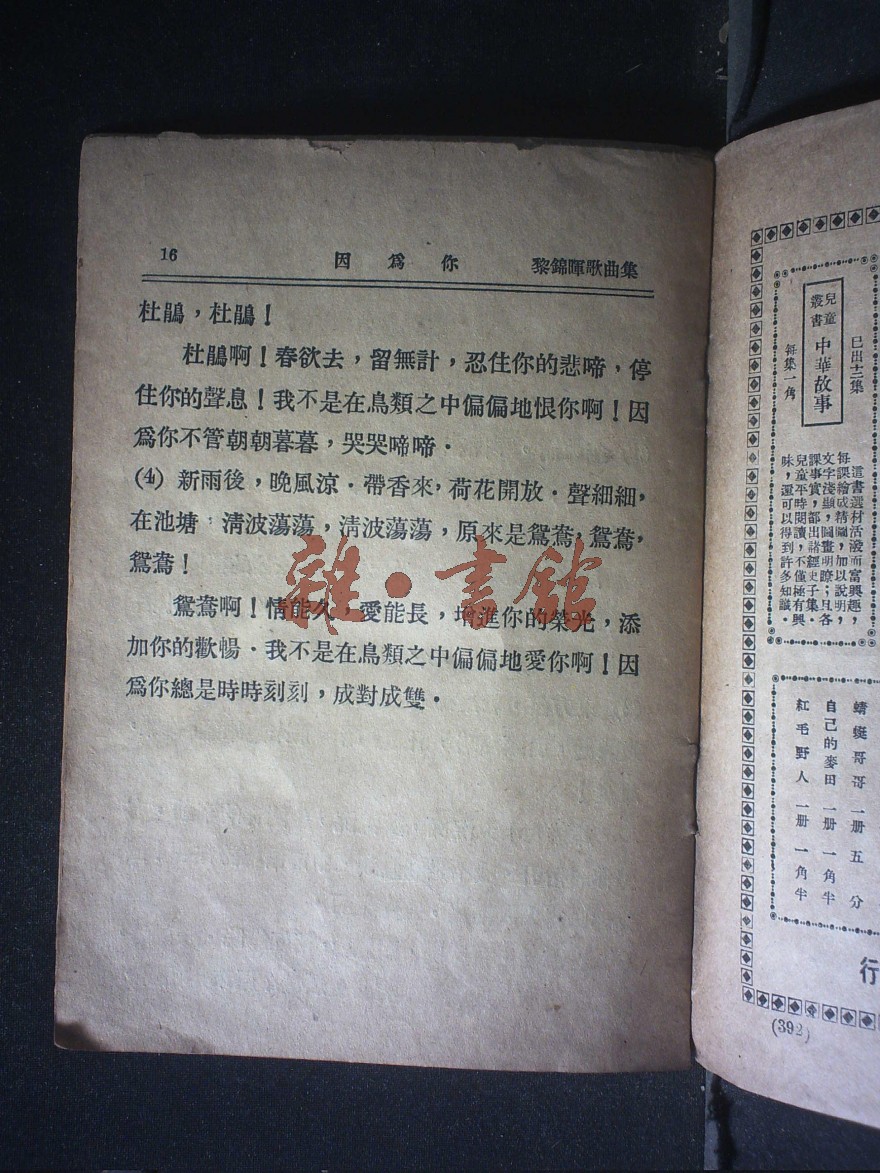 16 因為你 黎錦暉歌曲集
杜鵑，杜鵑！
杜鵑啊！春欲去，留無計，忍住你的悲啼，停
住你的聲息！我不是在鳥類之中偏偏地恨你啊！因
爲你不管朝朝暮暮，哭哭啼啼．
(4) 新雨後，晚風涼．帶香來，荷花開放．聲細細，
在池塘，淸波蕩蕩，淸波蕩蕩，原來是鴛鴦，鴛鴦，
鴛鴦！
鴛鴦啊！情能久，愛能長，增進你的榮光，添
加你的歡暢．我不是在鳥類之中偏偏地愛你啊！因
爲你總是時時刻刻，成對成雙．
雜·書館
已出十二集
兒童叢書 中華故事
每集一角
這書選材活潑而富興趣，
每課繪成精圖，加以說明，
文字淺顯，圖畫明瞭；且各
課事實，都出諸經史子集．
兒童平時閱讀，不僅極有興
味，還可以得到許多知識．
蜻蜓哥哥 一册 五分
自己的麥田 一册 一角半
紅毛野人 一册 一角半
行
(392)